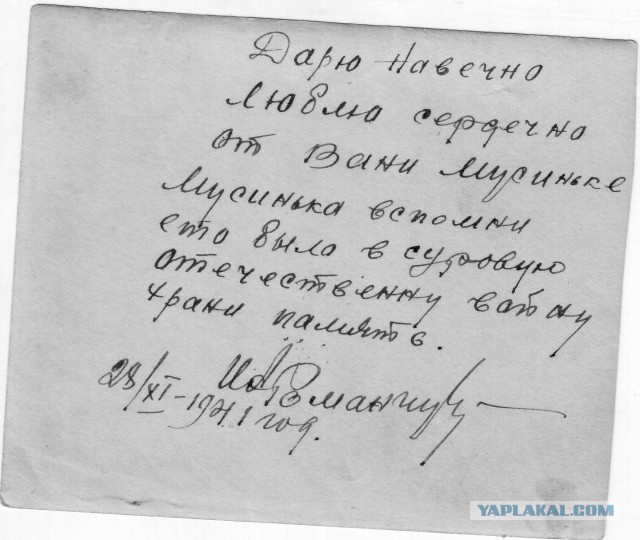 Дарю навечно
люблю сердечно
от Вани Мусиньке
Мусинька вспомни
ето была в суровую
отечественну вайну
храни память.
28/XI-1941 год.
YAPLAKAL.COM